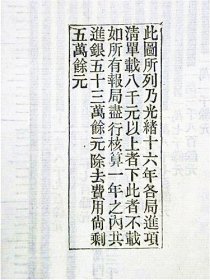 此圖所列乃光緒十六年各局進項
清單載八千元以上者下此者不載
如所有報局盡行核算一年之內共
進銀五十三萬餘元除去費用尙剩
五萬餘元